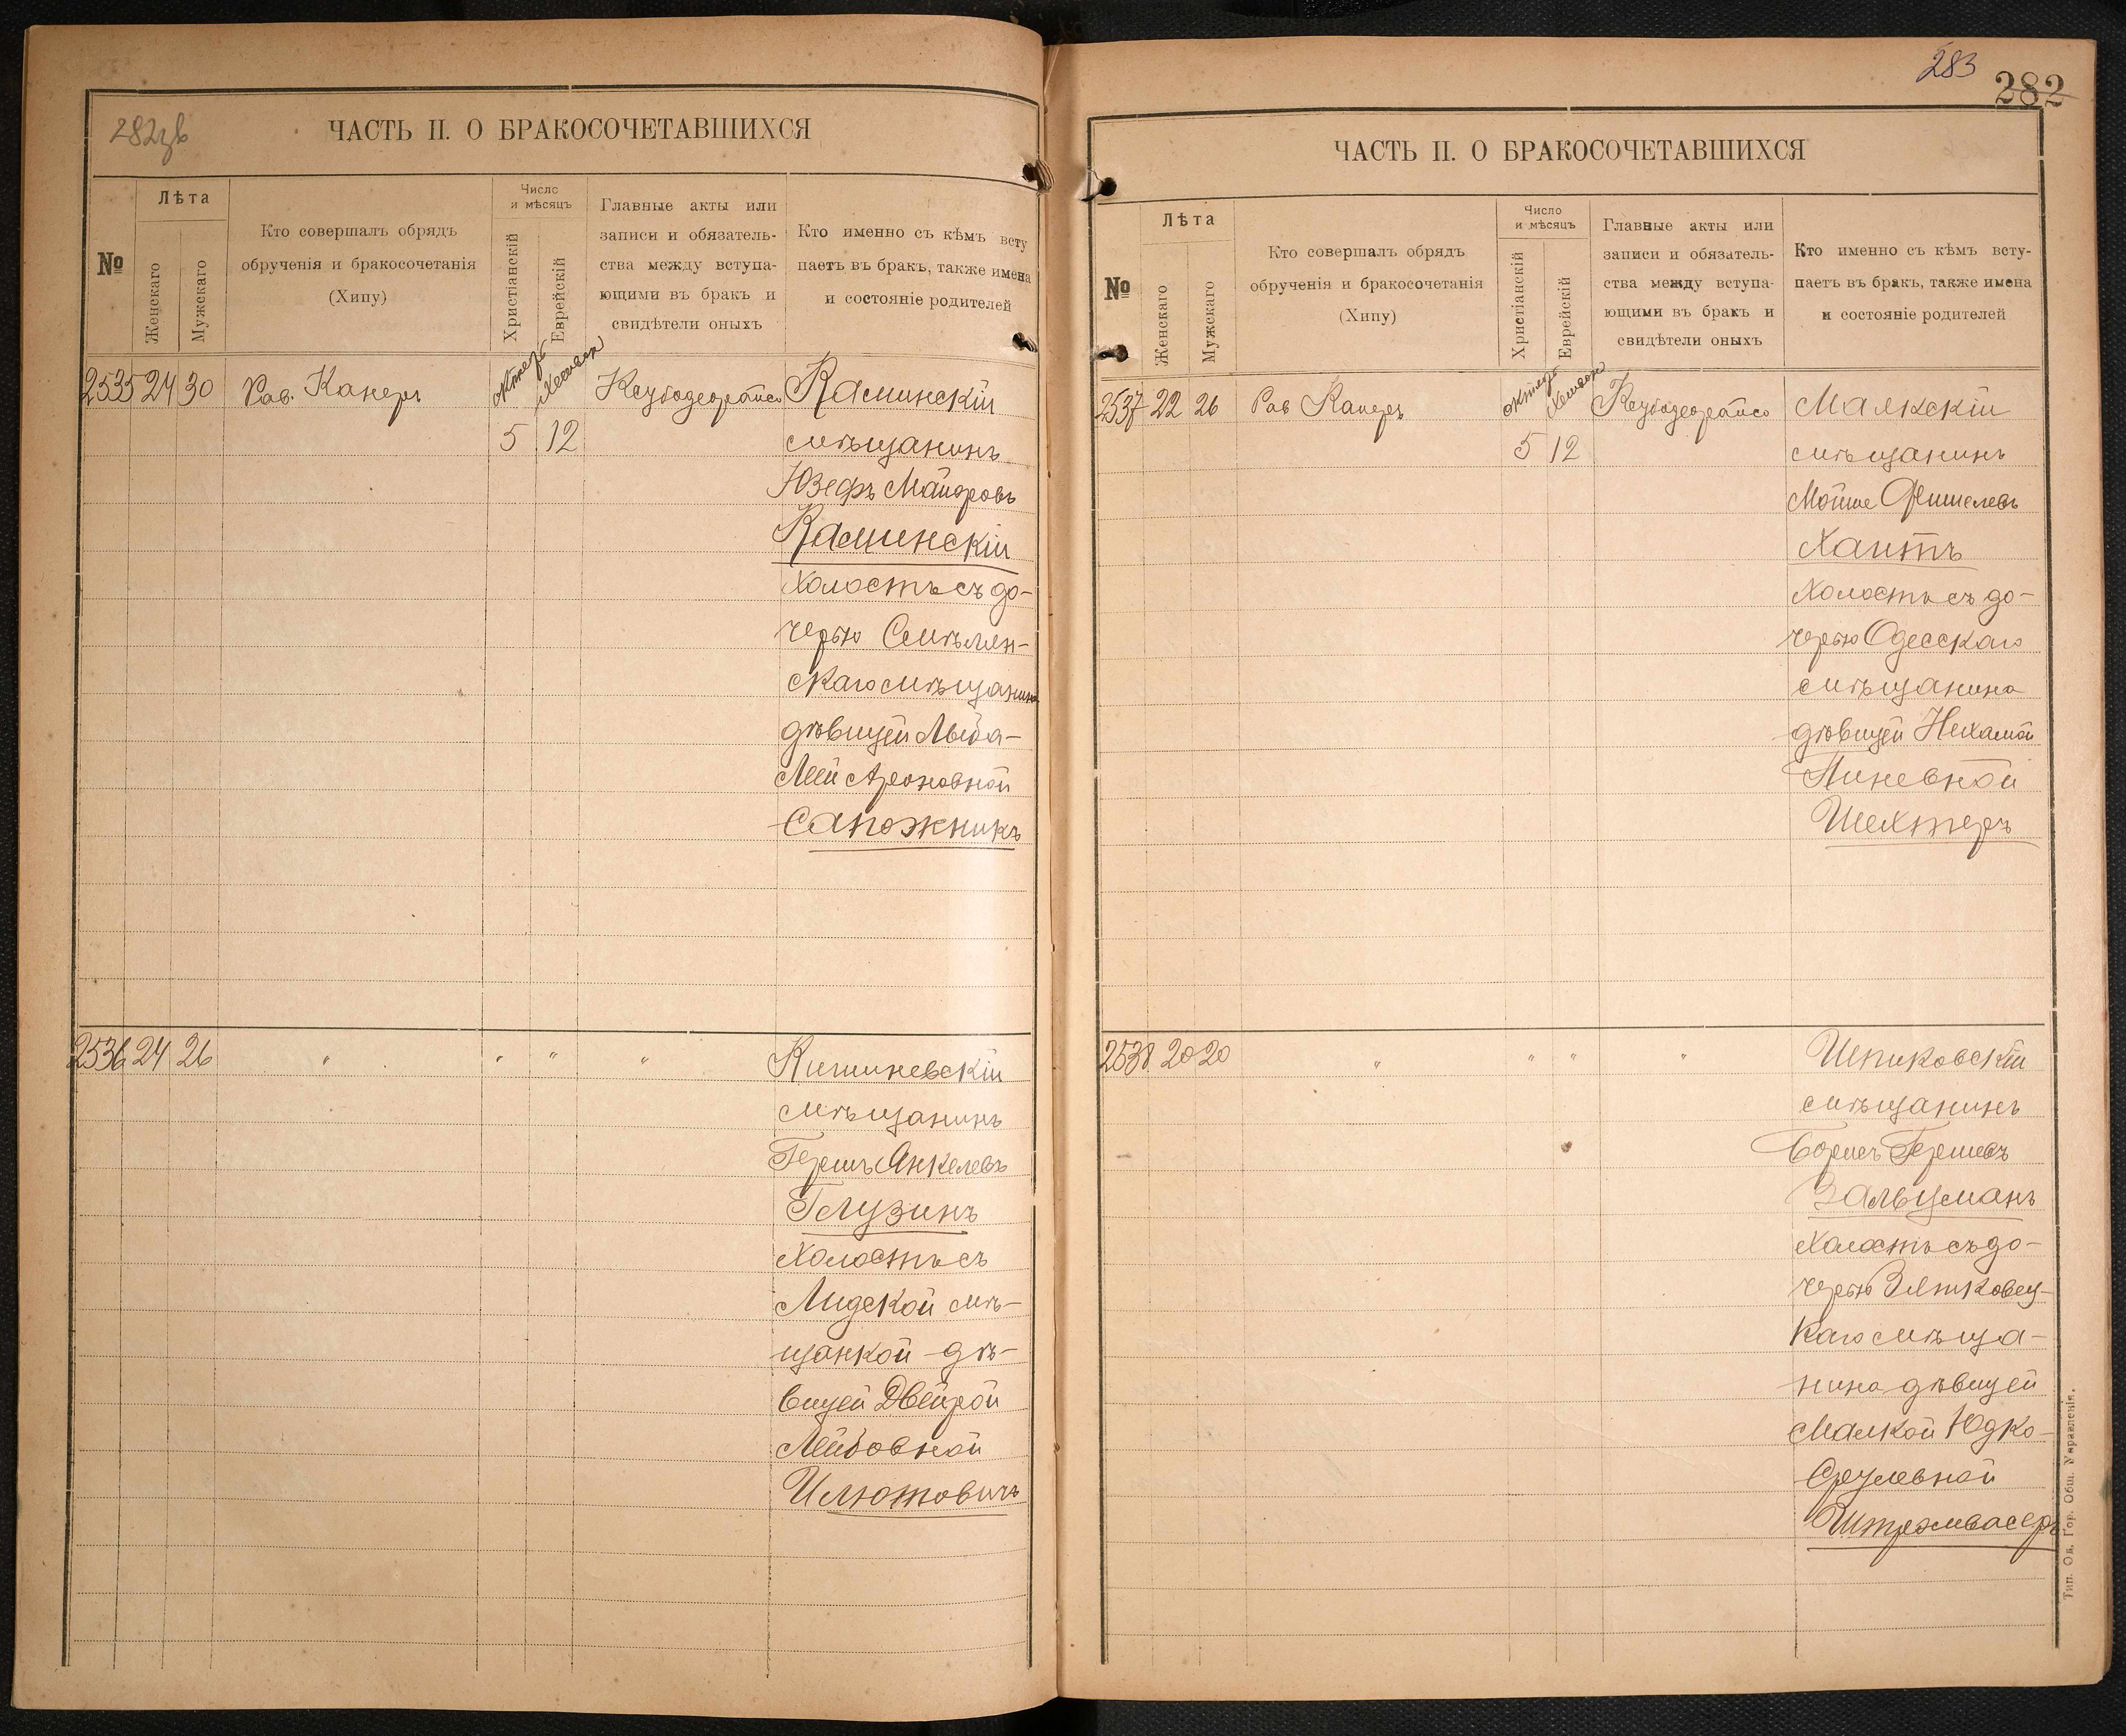 282зв
ЧАСТЬ II. О БРАКОСОЧЕТАВШИХСЯ
№
Лѣта
Женскаго
Мужскаго
Кто совершалъ обрядъ
обрученія и бракосочетанія
(Хипу)
Число
и мѣсяцъ
Христіанскій
Еврейскій
Главные акты или
записи и обязатель-
ства между вступа-
ющими въ бракъ и
свидѣтели оныхъ
Кто именно съ кѣмъ всту
паетъ въ бракъ, также имена
и состояніе родителей
2535 24 30 Рав. Канеръ
5 12
Каминскій
мѣщанинъ
Юзефъ Майоровъ
Каминскій
холостъ съ до-
черью
скаго мѣщанина
дѣвицей
Леей Ароновной
Сапожникъ
2536 24 26 " " " "
Кишиневскій
мѣщанинъ
Гершъ Янкелевъ
Глузинъ
холостъ съ
Лидской мѣ-
щанкой дѣ-
вицей Двейрой
Лейбовной
Илютовичъ
283
282
ЧАСТЬ II. О БРАКОСОЧЕТАВШИХСЯ
№
Лѣта
Женскаго
Мужскаго
Кто совершалъ обрядъ
обрученія и бракосочетанія
(Хипу)
Число
и мѣсяцъ
Христіанскій
Еврейскій
Главные акты или
записи и обязатель-
ства между вступа-
ющими въ бракъ и
свидѣтели оныхъ
Кто именно съ кѣмъ всту-
паетъ въ бракъ, также имена
и состояніе родителей
2537 22 26 Рав Канеръ
5 12
мѣщанинъ
Мойше Фишелевъ
Хаитъ
холостъ съ до-
черью Одесскаго
мѣщанина
дѣвицей Нехамой
Пиневной
Шехтеръ
2538 20 20 " " " "
Шпиковскій
мѣщанинъ
Борисъ Гершевъ
Зальцманъ
холостъ съ до-
черью
каго мѣща-
нина дѣвицей
Малкой Юдко-
Срулевной
Штромвасеръ
Тип. Од. Гор. Общ. Управленія.